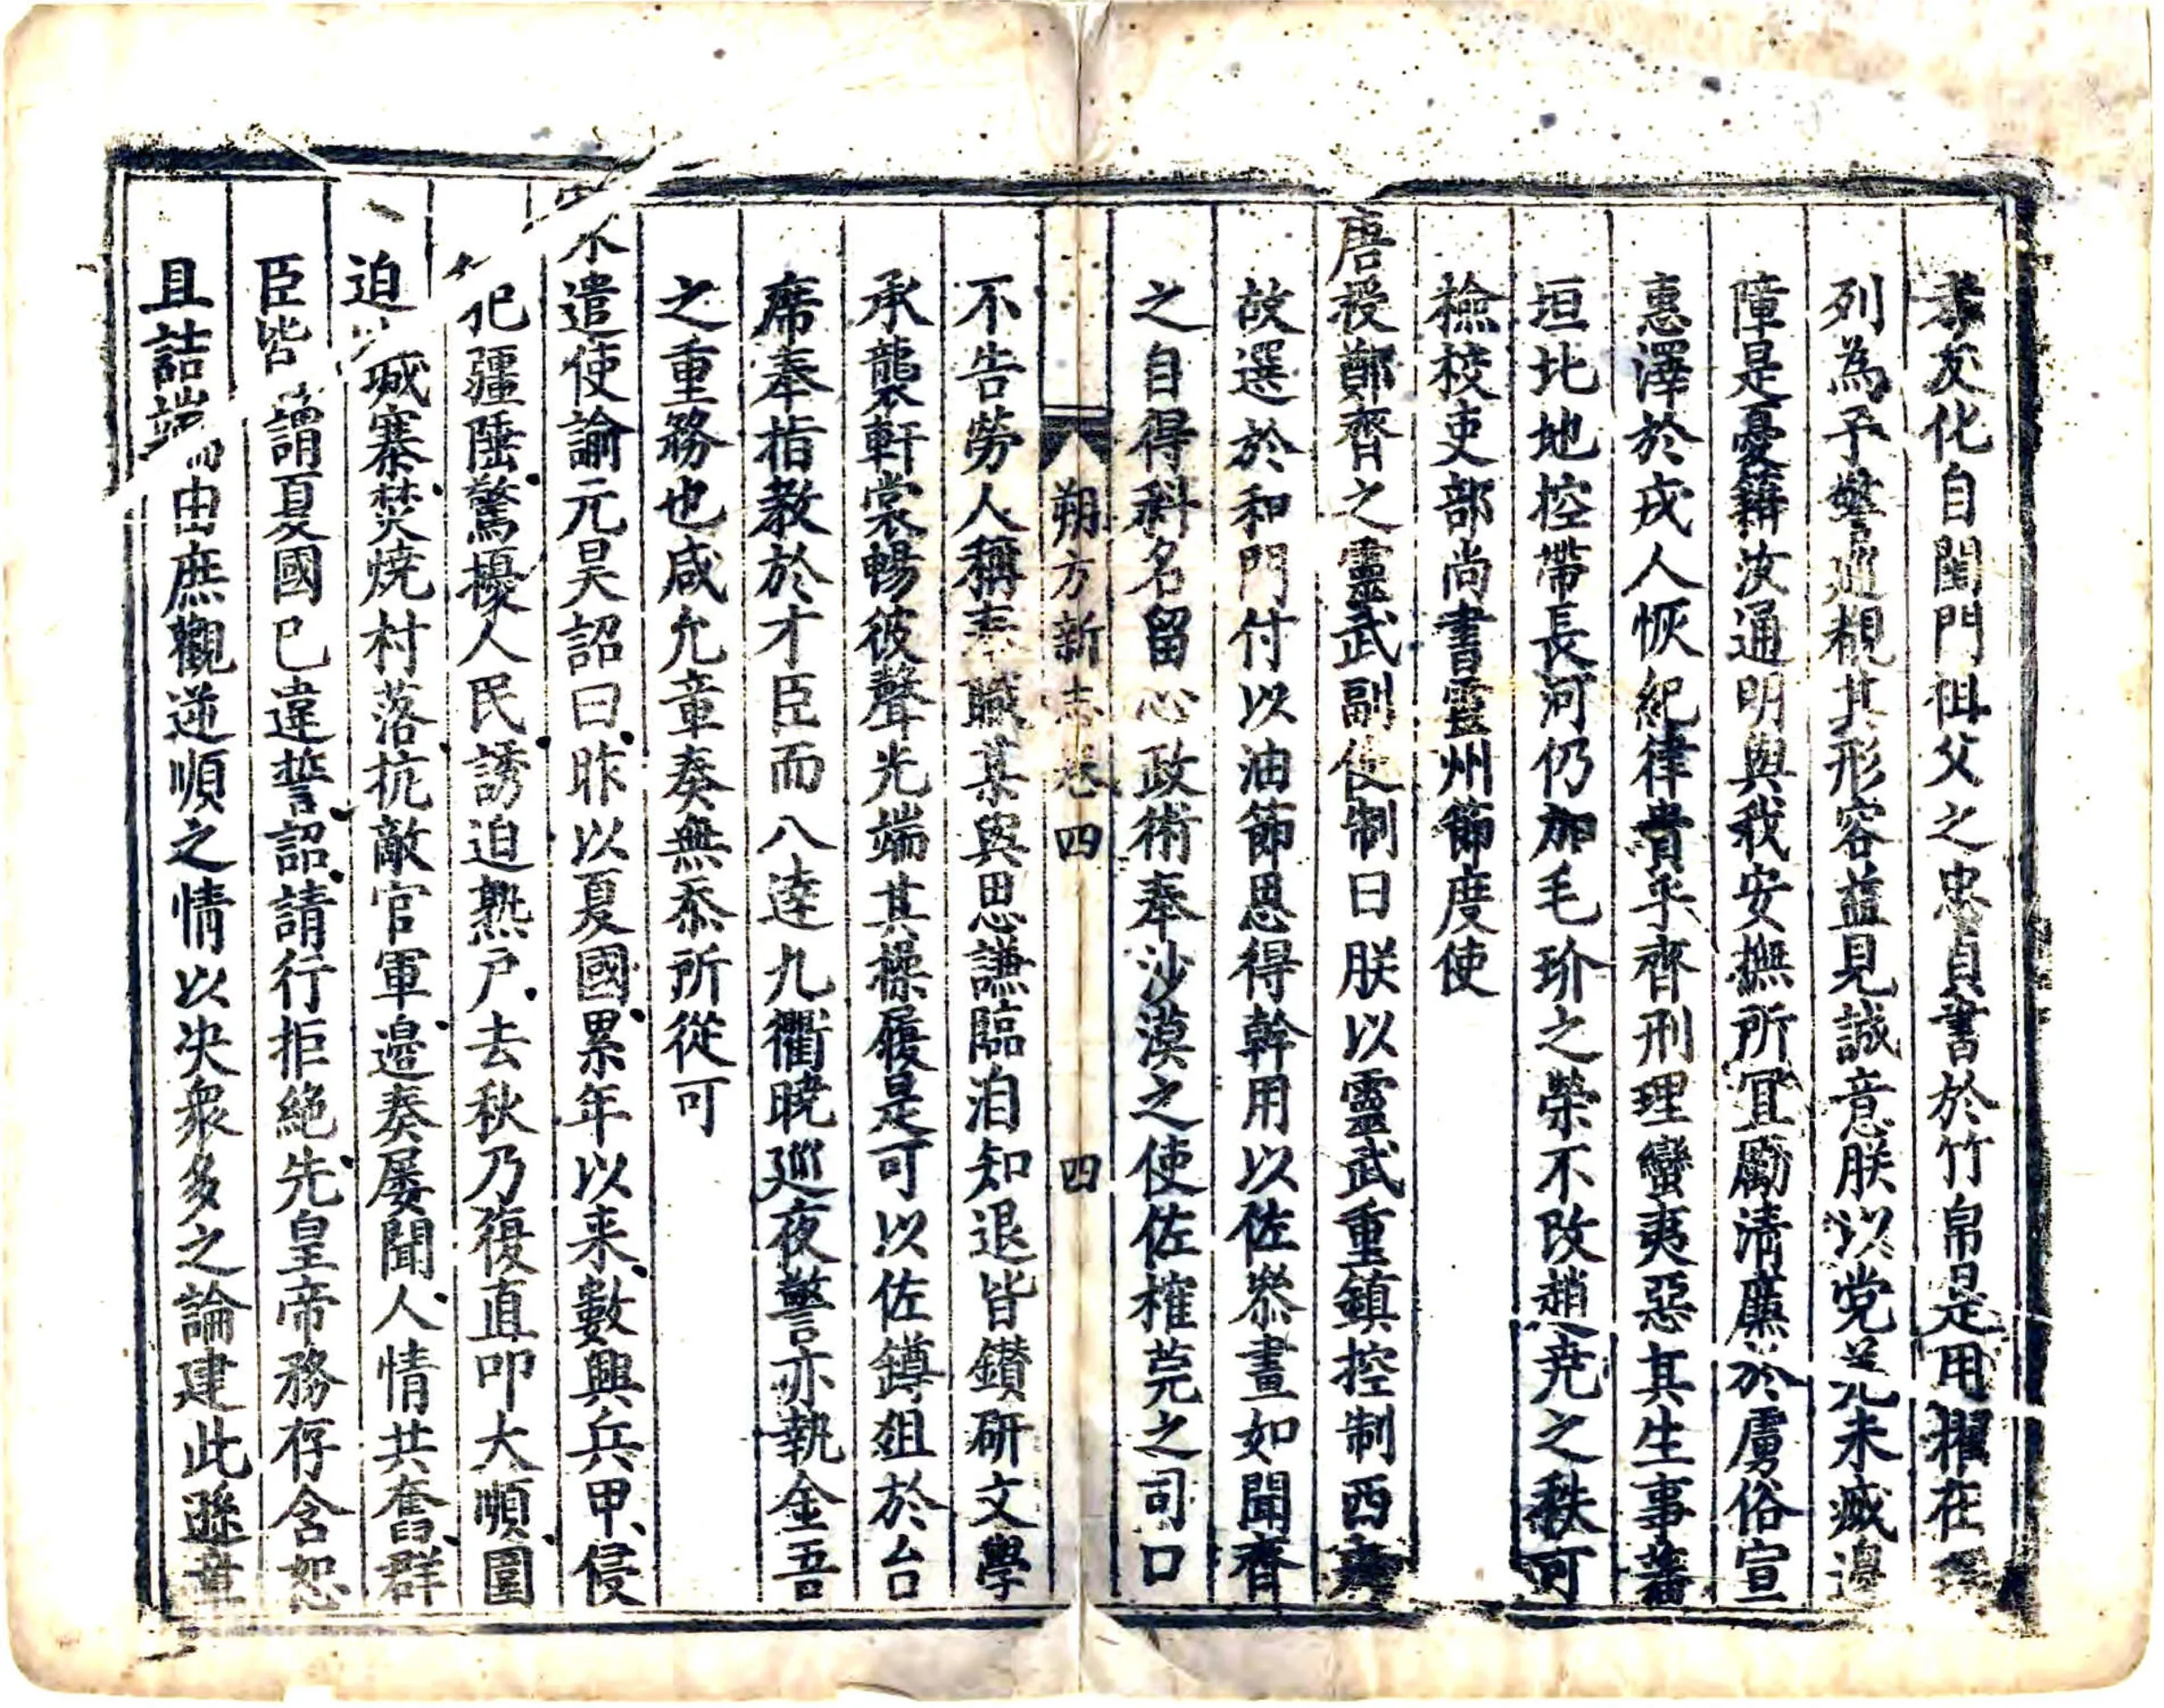 孝友化自閨門祖父之忠貞書於竹帛是用擢在
列為予警巡覩其形容益見誠意朕以党羌未滅邊
障是憂藉汝通明與我安撫所冝勵清廉於虜俗宣
惠澤於戎人恢紀律貴乎齊刑理蠻夷惡其生事蕃
垣北地控帶長河仍加毛玠之榮不改趙尭之秩可
檢校吏部尚書靈州節度使
唐授鄭齊之靈武副使制日朕以靈武重鎮控制西
故選於和門付以油節恩得幹用以佐叅畫如聞齊
之自得科名留心政術奉沙漠之使佐榷筦之司口
朔方新志卷四 四
不告勞人稱志職某與思謙臨洎知退皆鑚研文學
承襲軒裳暢彼聲光端其操履是可以佐鐏俎於台
席奉指教於才臣而八逹九衢曉巡夜警亦執金吾
之重務也咸允章奏無忝所從可
遣使諭元昊詔曰昨以夏國累年以来數興兵甲侵
犯疆陲驚擾人民誘迫熟户去秋乃復直叩大順圍
迫城寨焚燒村落抗敵官軍邉奏屡聞人情共奮群
臣皆謂夏國已違誓詔請行拒絶先皇帝務存含恕
且詰端由庶觀逆順之情以决衆多之論建此遜章